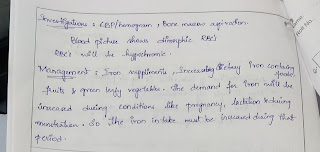 Investigations : CBP/hemogram, Bone marrow aspiration.
Blood picture shows dimorphic RBCs
RBC's will be hypochromic.
Management : Iron suppliments, Increasing dietary iron containing foods,
fruits & green leafy vegetables. The demand for iron will be
increased during conditions like pregnancy, lactation & during
menstruation. So the iron intake must be increased during that
period.